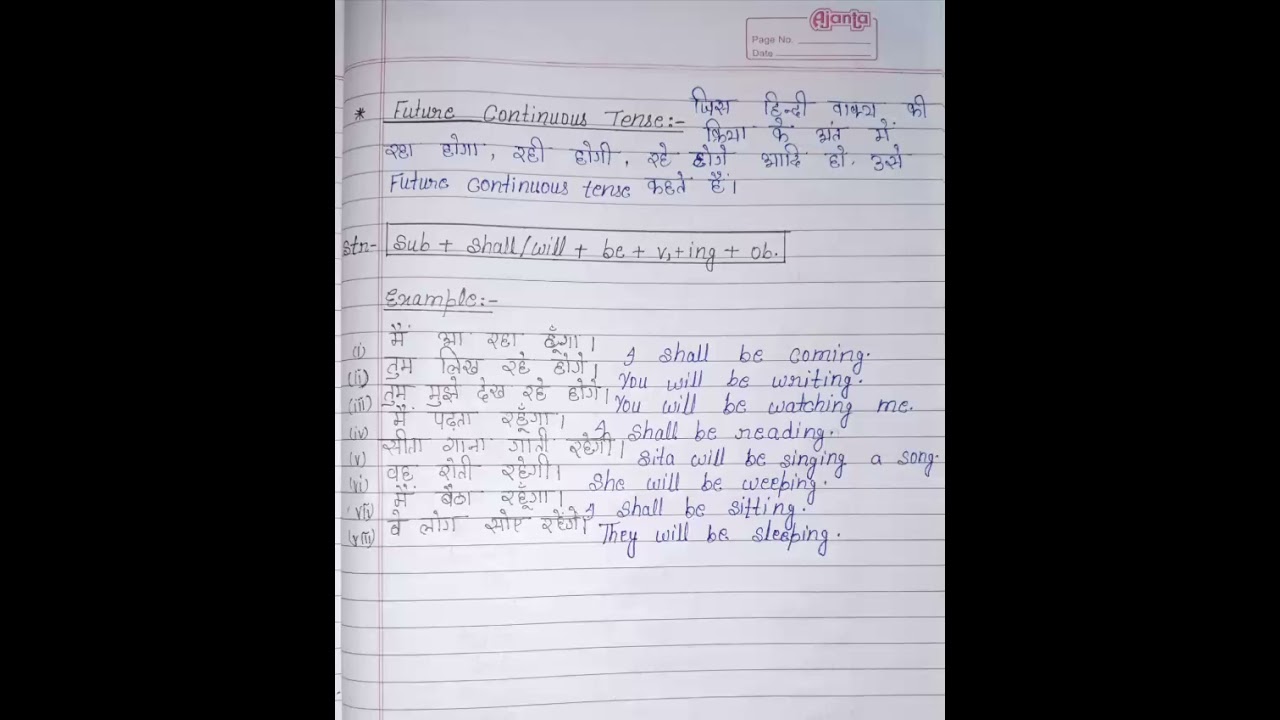 Ajanta
Page No.
Date
* Future Continuous Tense:- जिस हिन्दी वाक्य की
क्रिया के अंत में
रहा होगा, रही होगी, रहे होगे आदि हो. उसे
Future continuous tense कहते हैं।
Str- Sub + shall/will + be + v₁+ing + ob.
Example:-
(i) मैं आ रहा हूँगा। I shall be coming.
(ii) तुम लिख रहे होगे। You will be writing.
(iii) तुम मुझे देख रहे होगे। You will be watching me.
(iv) मैं पढ़ता रहूँगा। I shall be reading.
(v) सीता गाना गाती रहेगी। Sita will be singing a song.
(vi) वह रोती रहेगी। She will be weeping.
(vii) मैं बैठा रहूँगा। I shall be sitting.
(viii) वे लोग सोए रहेंगे। They will be sleeping.